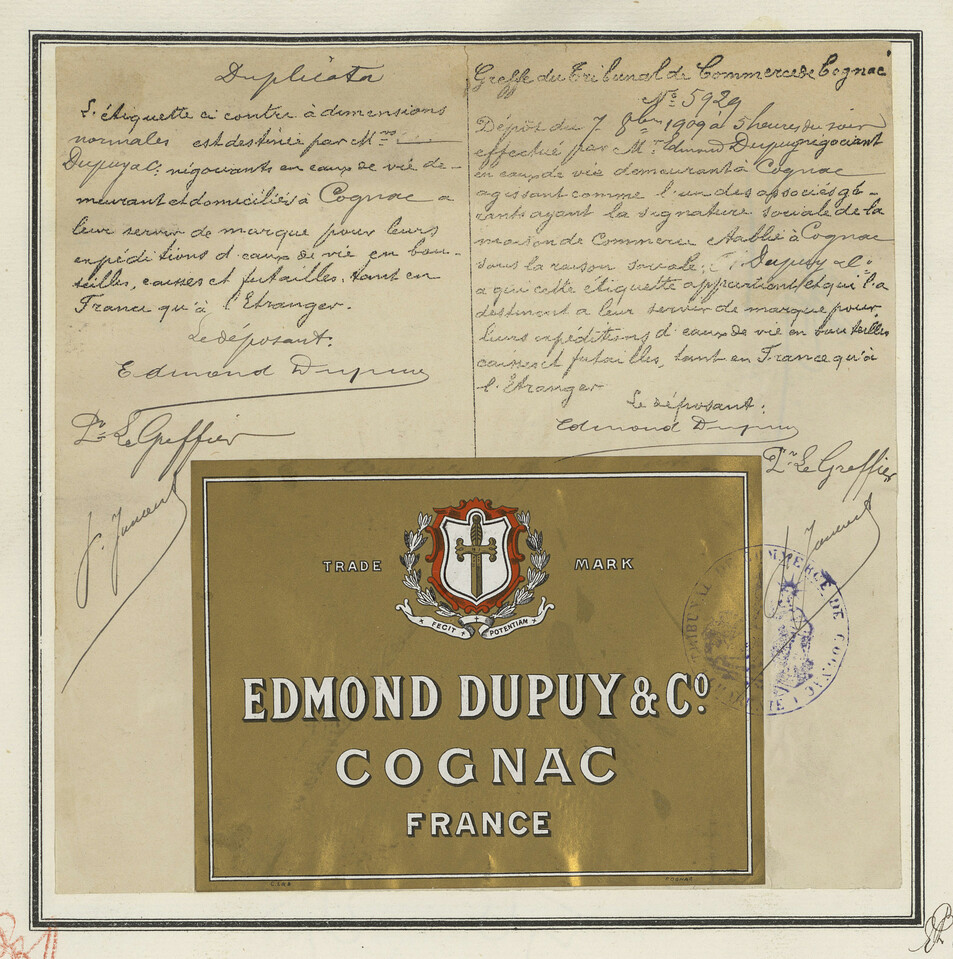 Duplicata
L'étiquette ci contre à dimensions
normales est destinée par M.
Dupuy & Cie négociants en eaux de vie de-
meurant et domiciliés à Cognac a
leur servir de marque pour leurs
expéditions d'eaux de vie en bou-
teilles, caisses et futailles, tant en
France qu'à l'Etranger.
Le déposant:
Edmond Dupuy
Pr Le Greffier
Greffe du Tribunal de Commerce de Cognac
No 5929
Dépôt du 7 8bre 1909 à 5 heures du soir
effectué par Mr Edmond Dupuy négociant
en eaux de vie demeurant à Cognac
agissant comme l'un des associés gé-
rants ayant la signature sociale de la
maison de Commerce établie à Cognac
sous la raison sociale: Dupuy & Co
a qui cette étiquette appartient et qui l'a
destinent a leur servir de marque pour
leurs expéditions d'eaux de vie en bouteilles
caisses et futailles, tant en France qu'à
l'Etranger
Le déposant:
Edmond Dupuy
Pr Le Greffier
TRADE MARK
FECIT POTENTIAM
EDMOND DUPUY & Co
COGNAC
FRANCE
TRIBUNAL DE COMMERCE DE COGNAC
COGNAC